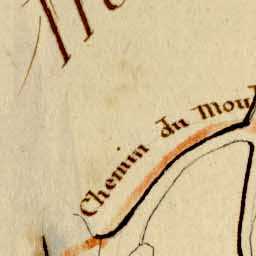 Chemin du Moul